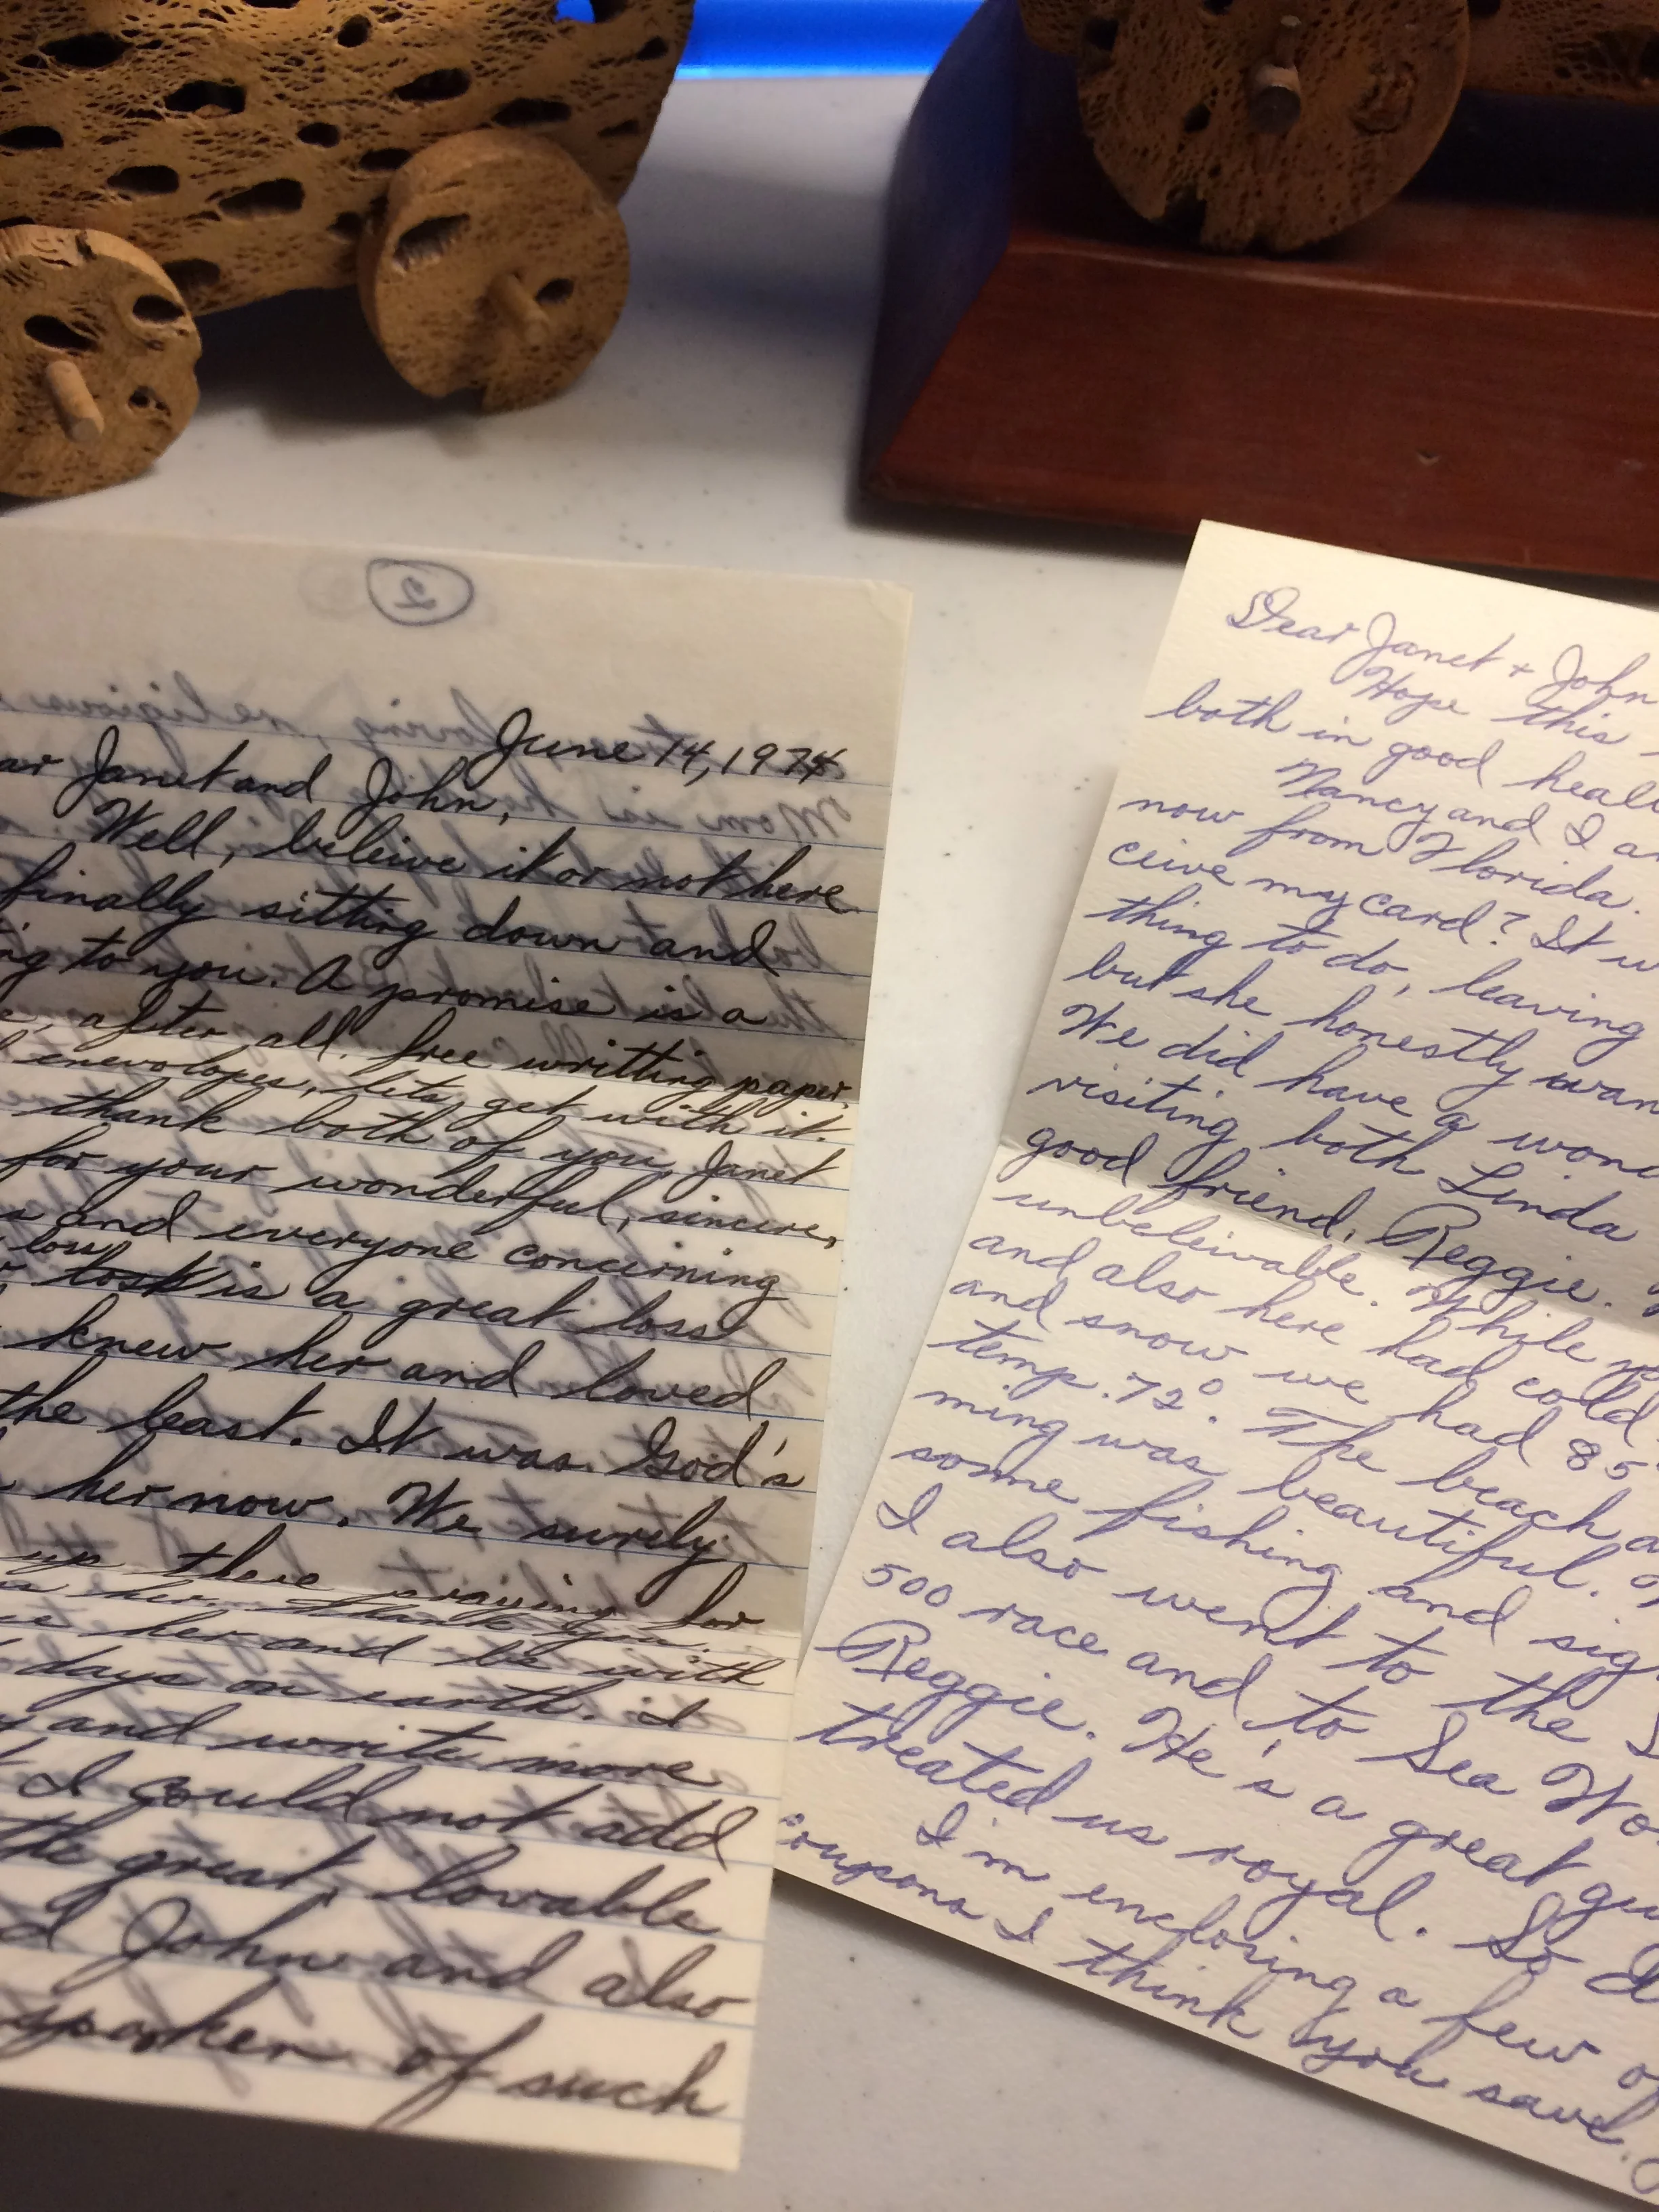 2
June 14, 1974
ar Janet and John,
Well, beleive it or not here
finally sitting down and
ng to you. A promise is a
e, after all. free writting paper
enevolopes, lets get with it.
thank both of you, Janet
for your wonderful, sincere,
s and everyone concerning
loss is a great loss
knew her and loved
the least. It was God's
her now. We surely
up there praying for
her. thank you.
her and be with
days on earth. I
y and write more
I could not add
the great, lovable
d John and also
spoken of such
Dear Janet + John
Hope this
both in good heal
Nancy and I a
now from Florida.
ceive my card? It w
thing to do, leaving
but she honestly wan
We did have a won
visiting both Linda
good friend, Reggie.
unbeleivable. While
and also here had cold
and snow we had 85°
temp. 72°. The beach a
ming was beautiful.
some fishing and sig
I also went to the
500 race and to Sea Wo
Reggie. He's a great gu
treated us royal. So
I'm enclosing a few o
coupons I think you save.